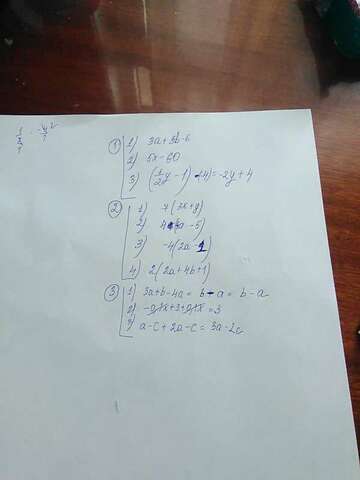 ① 1) 3a+3b-6
2) 5x-60
3) (1/2y-1)·(-4)=-2y+4
② 1) 7(3x+y)
2) 4(a-5)
3) -4(2a-1)
4) 2(2a+4b+1)
③ 1) 3a+b-4a=b-a=b-a
2) +3+ =3
3) a-c+2a-c=3a-2c